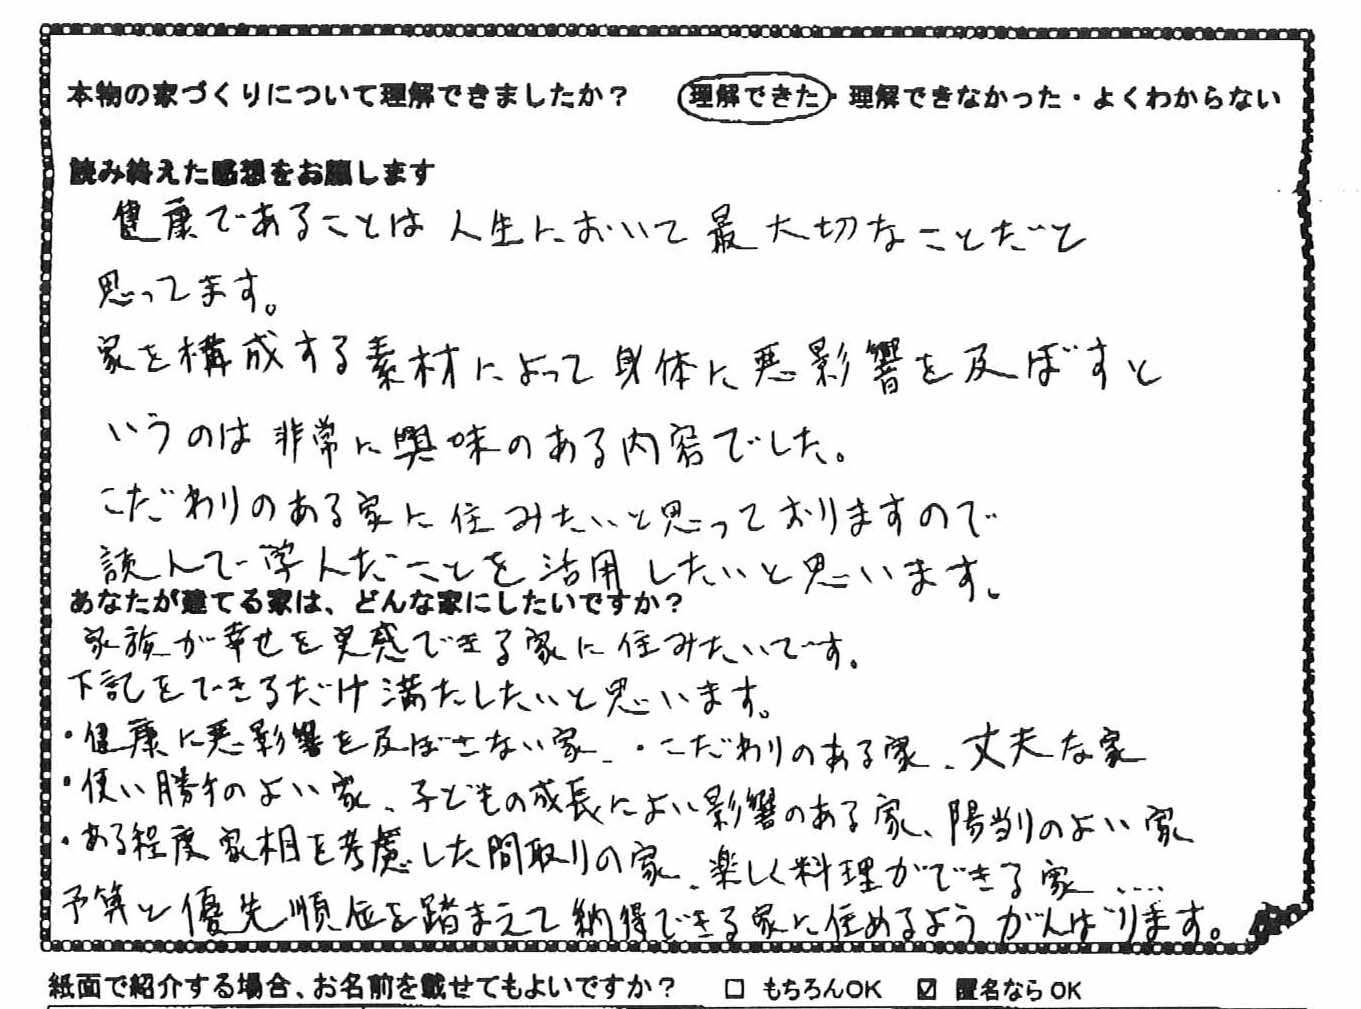 本物の家づくりについて理解できましたか？　理解できた・理解できなかった・よくわからない
読み終えた感想をお願します
健康であることは人生において最大切なことだと
思ってます。
家を構成する素材によって身体に悪影響を及ぼすと
いうのは非常に興味のある内容でした。
こだわりのある家に住みたいと思っておりますので
読んで学んだことを活用したいと思います。
あなたが建てる家は、どんな家にしたいですか？
家族が幸せを実感できる家に住みたいです。
下記をできるだけ満たしたいと思います。
・健康に悪影響を及ぼさない家、・こだわりのある家、丈夫な家
・使い勝手のよい家、子どもの成長によい影響のある家、陽当りのよい家
・ある程度家相を考慮した間取りの家、楽しく料理ができる家‥‥
予算と優先順位を踏まえて納得できる家に住めるようがんばります。
紙面で紹介する場合、お名前を載せてもよいですか？　□ もちろんOK　☑ 匿名ならOK